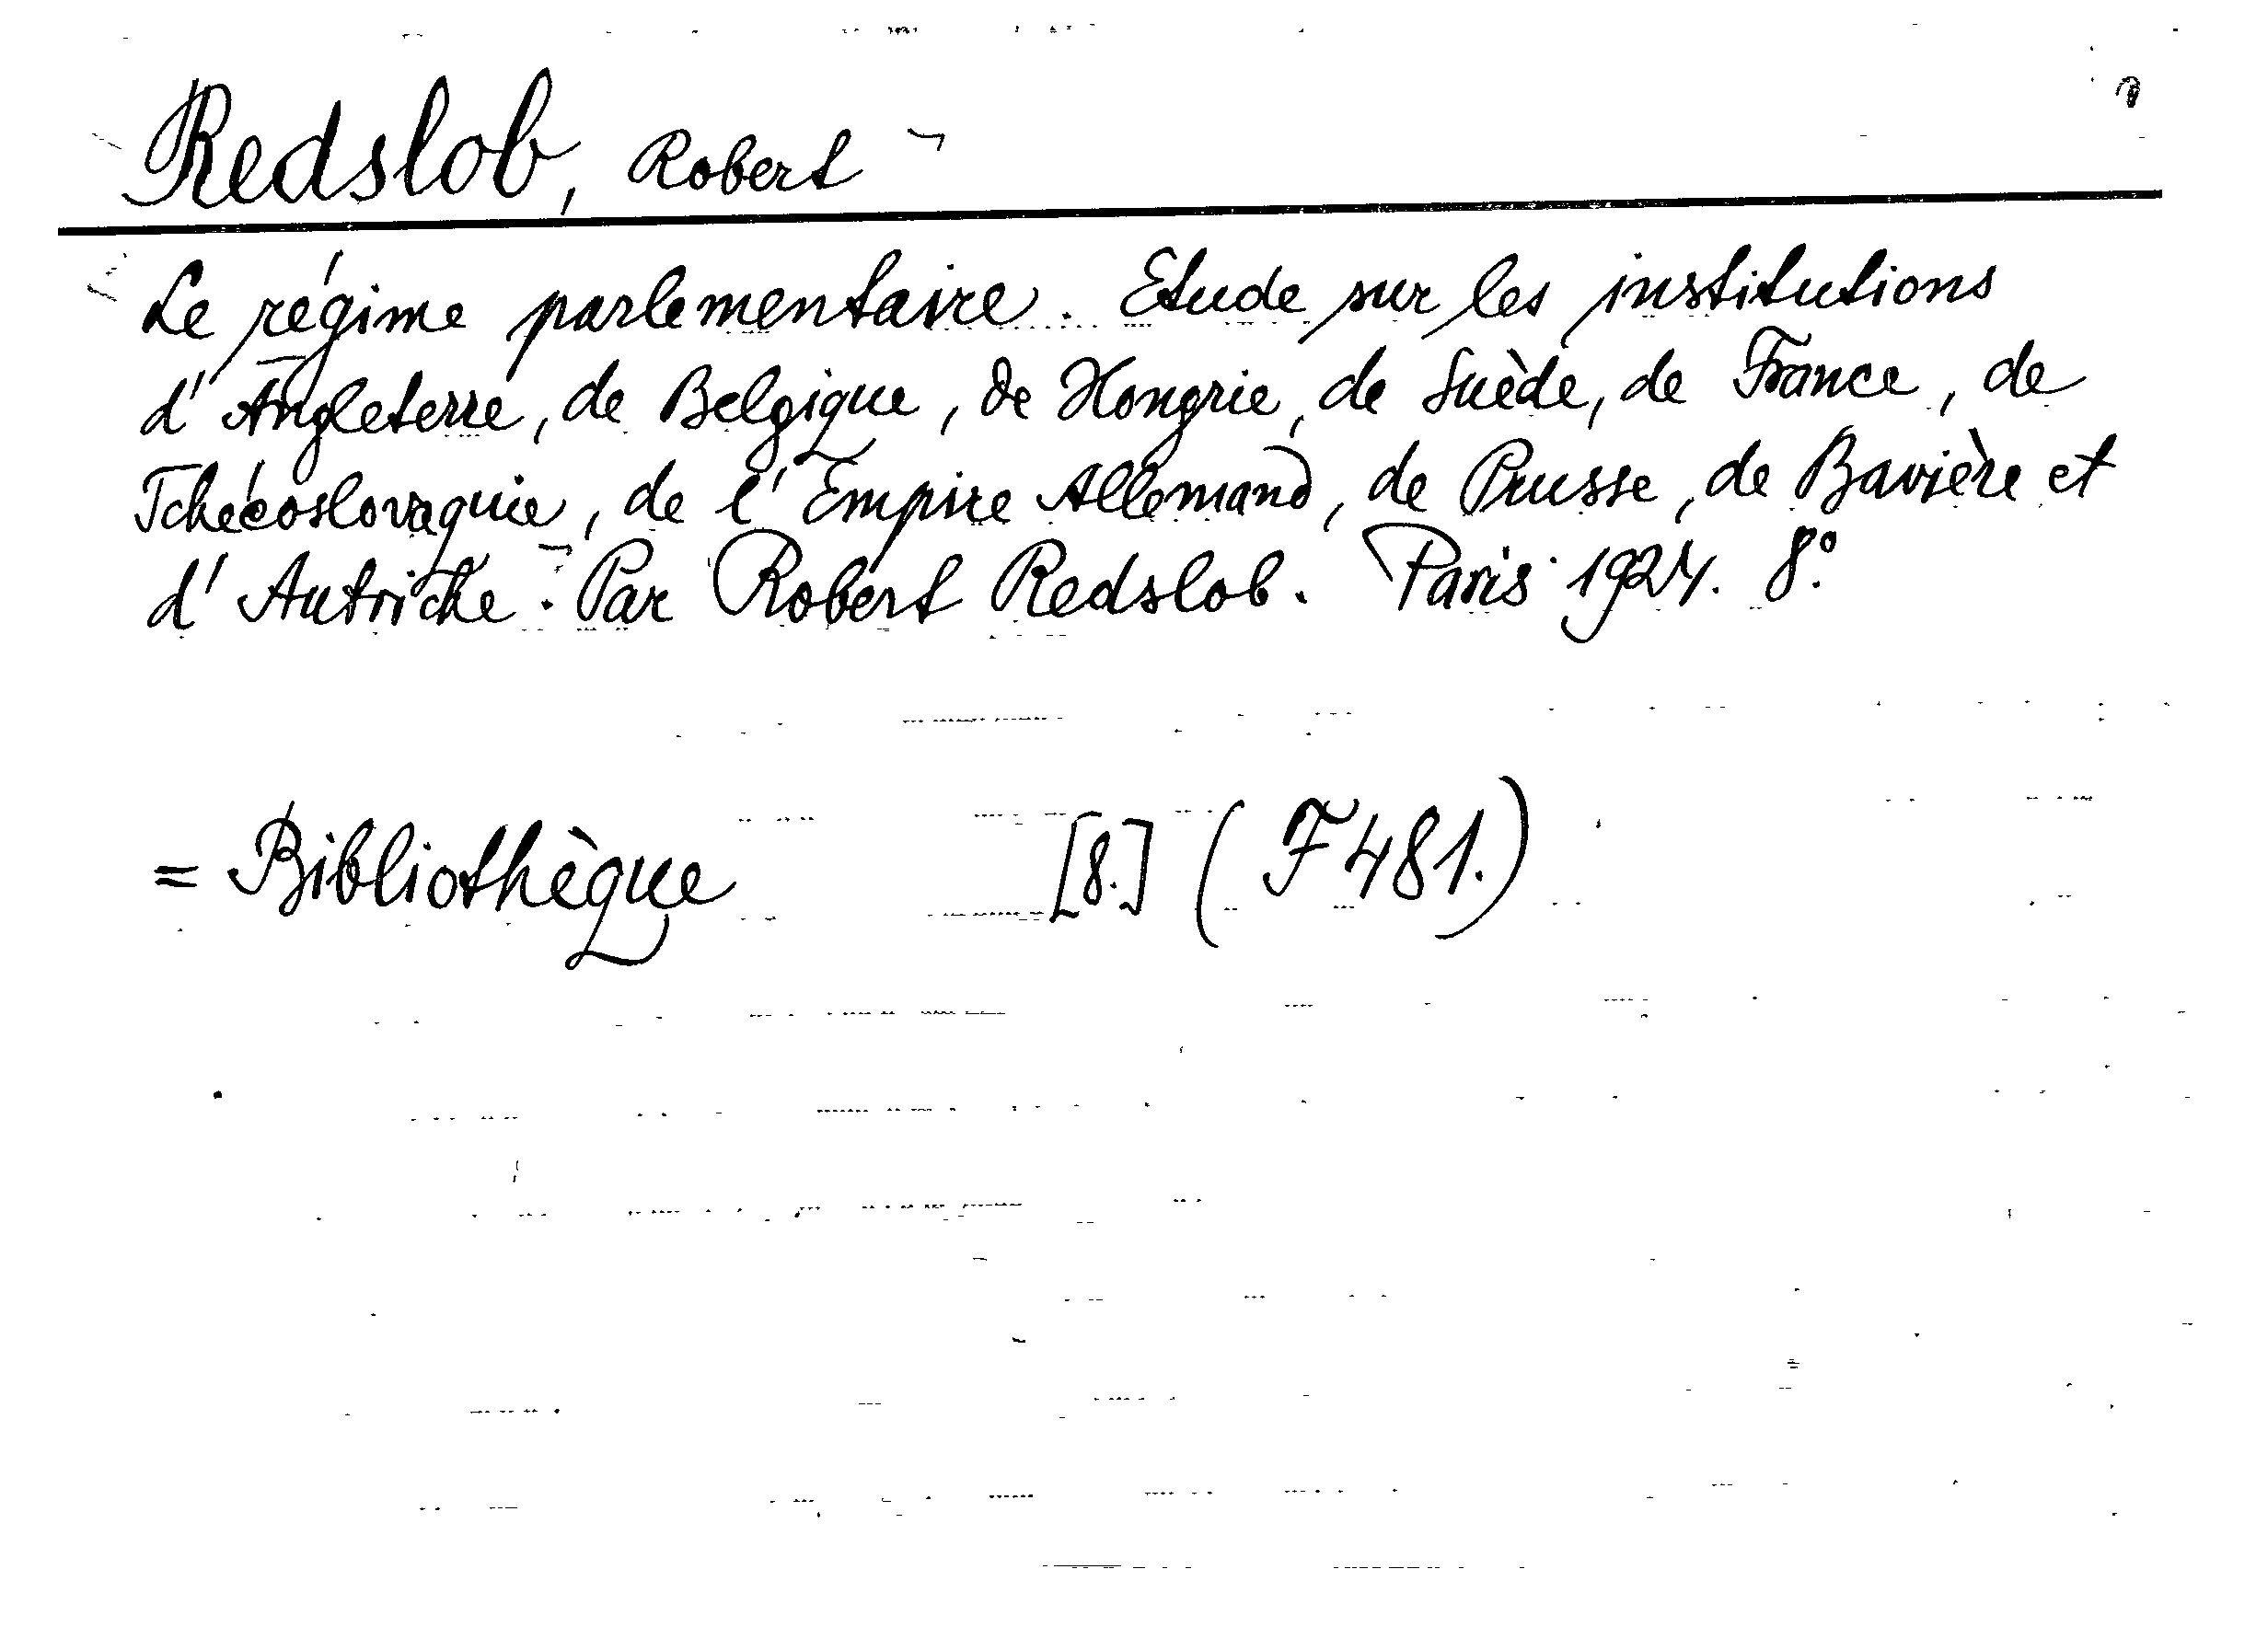 Redslob, Robert
Le régime parlementaire. Etude sur les institutions
d'Angleterre, de Belgique, de Hongrie, de Suède, de France, de
Tchécoslovaquie, de l'Empire Allemand, de Prusse, de Bavière et
d'Autriche. Par Robert Redslob. Paris 1924. 8°.
= Bibliothèque [8.] (F 481.)